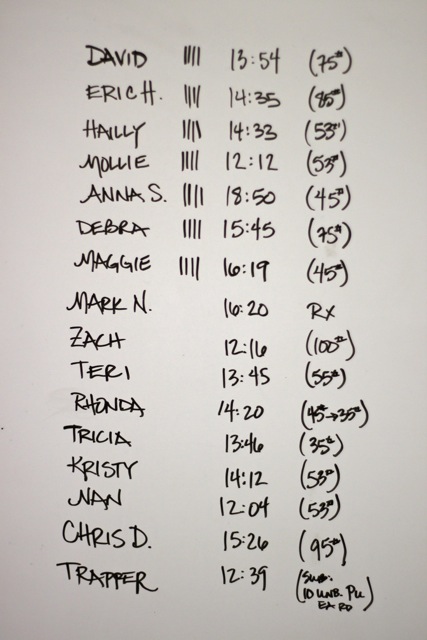 DAVID |||| 13:54 (75#)
ERIC H. |||| 14:35 (85#)
HAILLY |||| 14:33 (53#)
MOLLIE |||| 12:12 (53#)
ANNA S. |||| 18:50 (45#)
DEBRA |||| 15:45 (75#)
MAGGIE |||| 16:19 (45#)
MARK N. 16:20 RX
ZACH 12:16 (100#)
TERI 13:45 (55#)
RHONDA 14:20 (45#→35#)
TRICIA 13:46 (35#)
KRISTY 14:12 (53#)
NAN 12:04 (53#)
CHRIS D. 15:26 (95#)
TRAPPER 12:39 (SUB:
10 UNB. PU
EA RD)